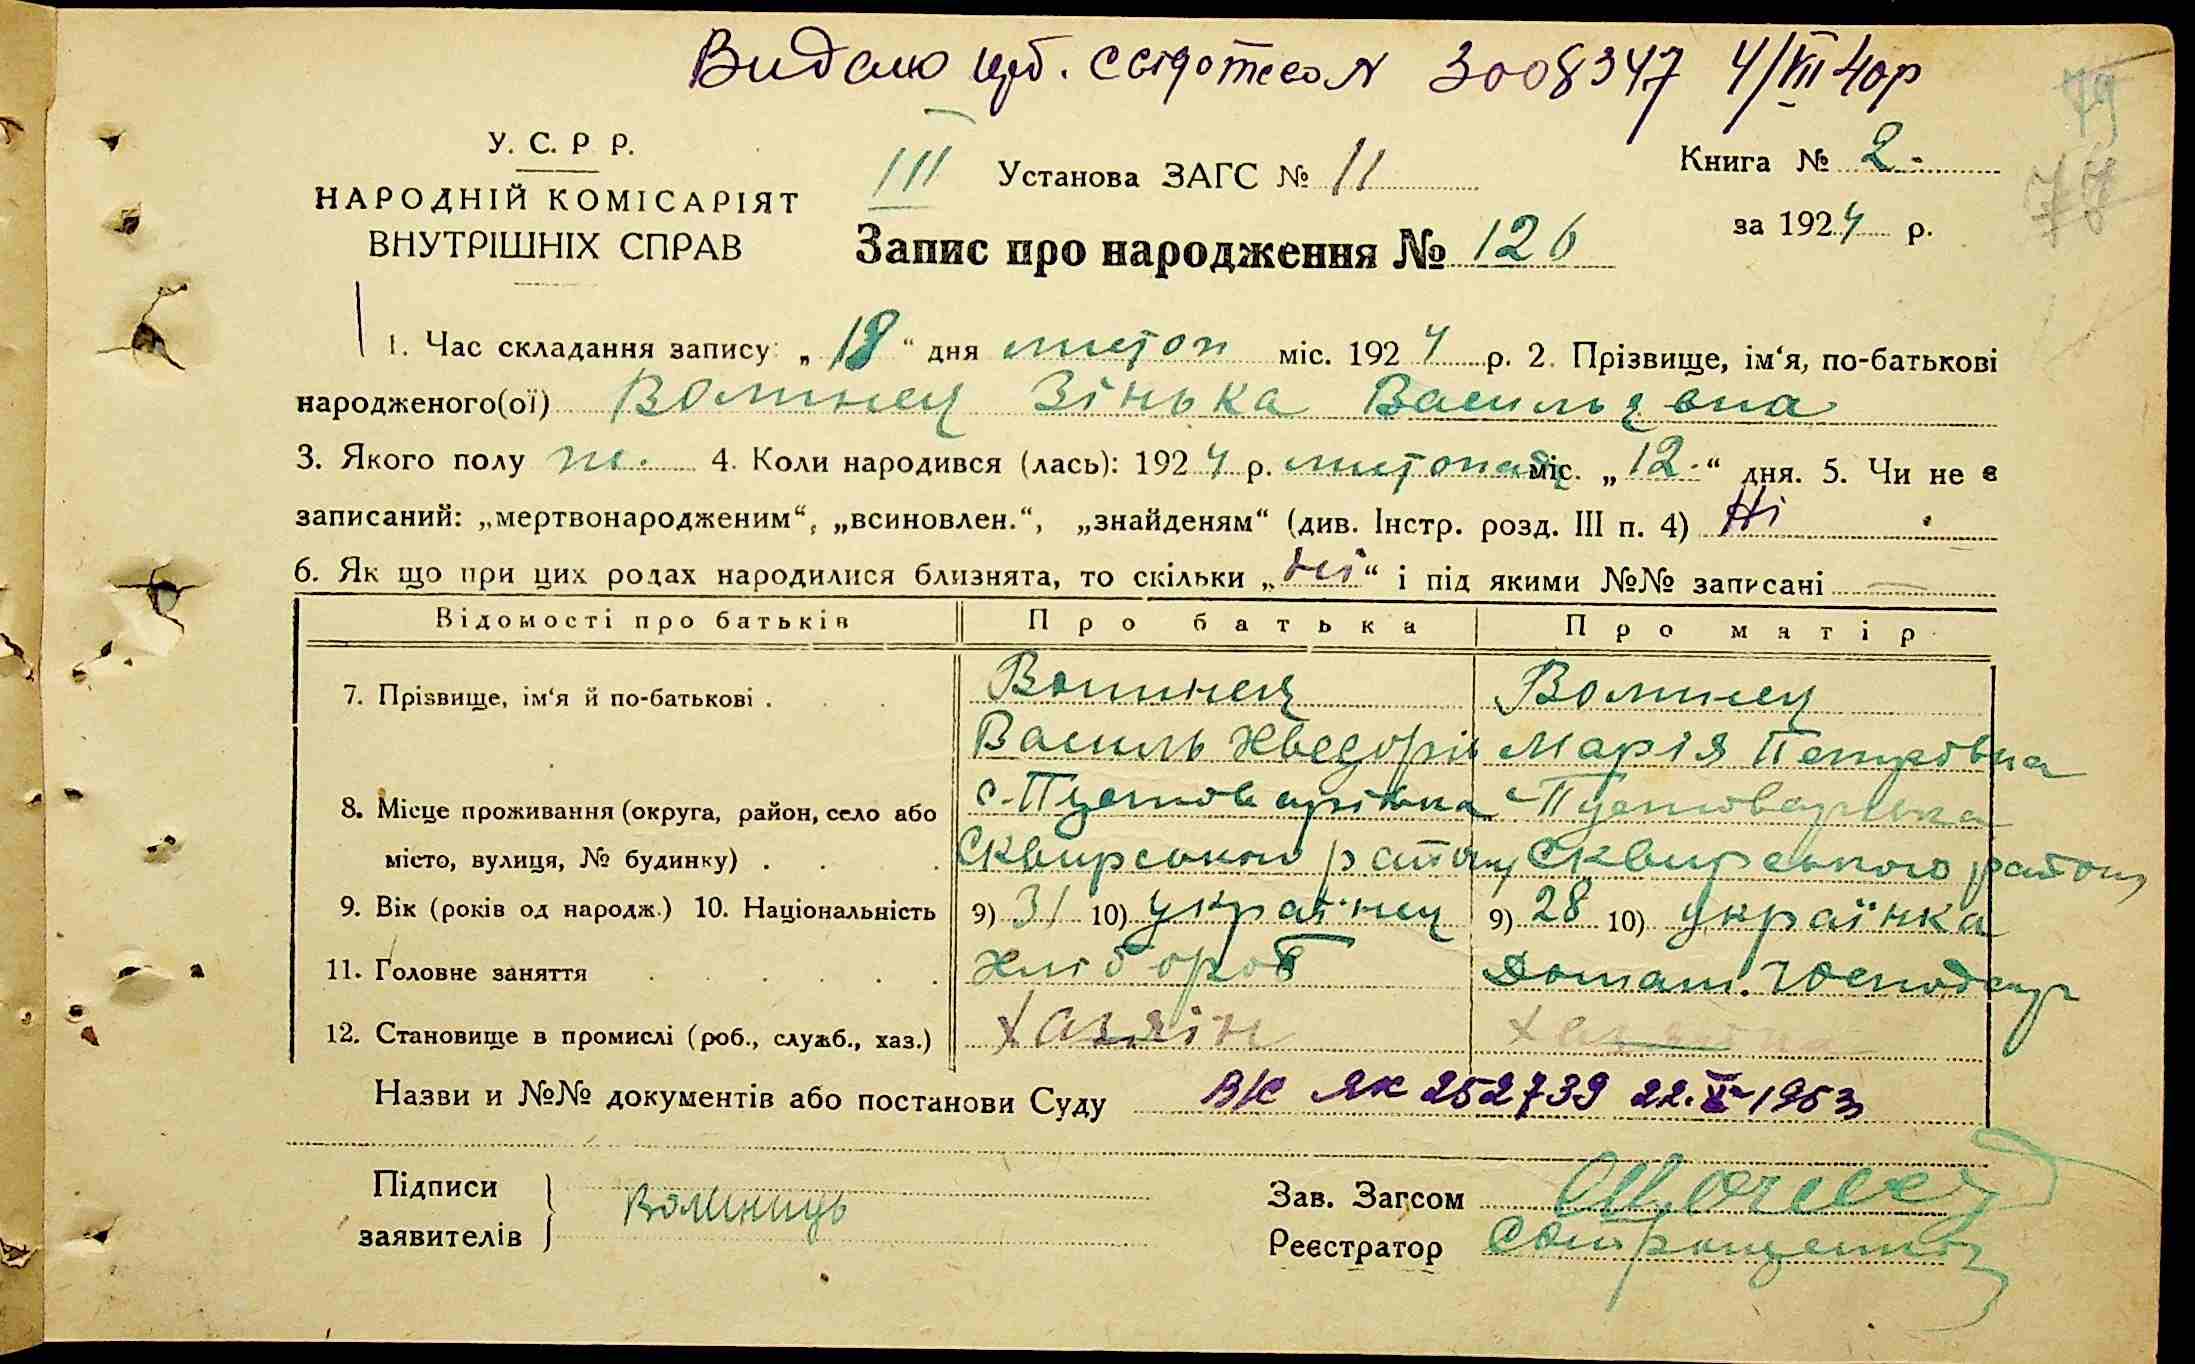 Видано свідотсво N 3008347 4/VII 40р
79
78
У. С. Р Р.
НАРОДНІЙ КОМІСАРІЯТ
ВНУТРІШНІХ СПРАВ
III Установа ЗАГС № 11
Запис про народження № 126
Книга № 2
за 1924 р.
1. Час складання запису: „18“ дня листоп міс. 1924 р. 2. Прізвище, ім‘я, по-батькові
народженого(ої) Волинец Зінька Васильевна
3. Якого полу ж. 4. Коли народився (лась): 1924 р. листопад міс. „12“ дня. 5. Чи не є
записаний: „мертвонародженим“, „всиновлен.“, „знайденям“ (див. Інстр. розд. III п. 4) Ні
6. Як що при цих родах народилися близнята, то скільки „ні“ і під якими №№ записані —
Відомості про батьків Про батька Про матір
7. Прізвище, ім‘я й по-батькові . Волинец Волинец
Василь Хведорів Марія Петровна
8. Місце проживання (округа, район, село або с. Пустоварівка с Пустоварівка
місто, вулиця, № будинку) . Сквирського району Сквирського району
9. Вік (років од народж.) 10. Національність 9) 31 10) українец 9) 28 10) українка
11. Головне заняття хлібороб Домаш. господар
12. Становище в промислі (роб., служб., хаз.) хазяін хазяйка
Назви и №№ документів або постанови Суду В/С ЯК 252739 22.X 1953
Підписи
заявителів
Волиниць
Зав. Загсом
Реєстратор